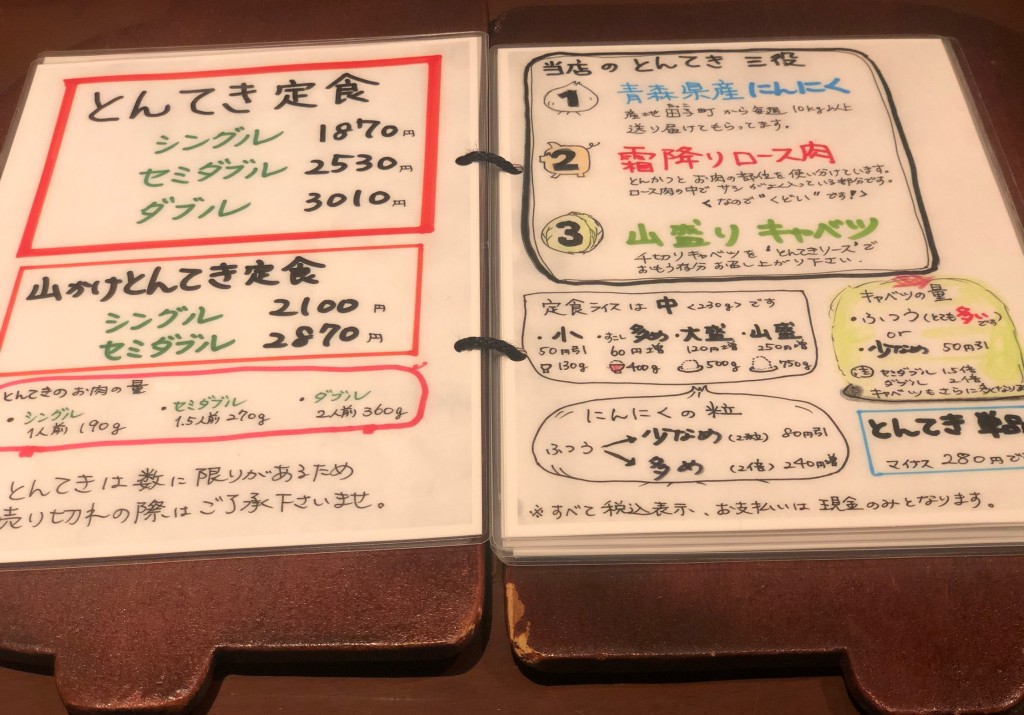 とんてき定食
シングル 1870円
セミダブル 2530円
ダブル 3010円
山かけとんてき定食
シングル 2100円
セミダブル 2870円
とんてきのお肉の量
・シングル ・セミダブル ・ダブル
1人前 190g 1.5人前 270g 2人前 360g
とんてきは数に限りがあるため
売り切れの際はご了承下さいませ。
当店のとんてき三役
1 青森県産にんにく
産地田子町から毎週10kg以上
送り届けてもらってます。
2 霜降りロース肉
とんかつとお肉の部位を使い分けています。
ロース肉の中でサシがよく入っている部分です。
くなので"くどい"です!>
3 山盛りキャベツ
千切りキャベツを"とんてきソース"で
おもうぞ分お召し上がり下さい。
定食ライスは中<230g>です
・小 ・すこし多め ・大盛 ・山盛
50円引 60円増 120円増 250円増
130g 400g 500g 750g
にんにくの粒
ふつう
少なめ (2粒) 80円引
多め (2倍) 240円増
キャベツの量
・ふつう(とても多いです)
or
・少なめ 50円引
セミダブル 1.5倍
ダブル 2倍
キャベツもさらに多くなり
とんてき 単品
マイナス 280円で
※すべて税込表示、お支払いは現金のみとなります。